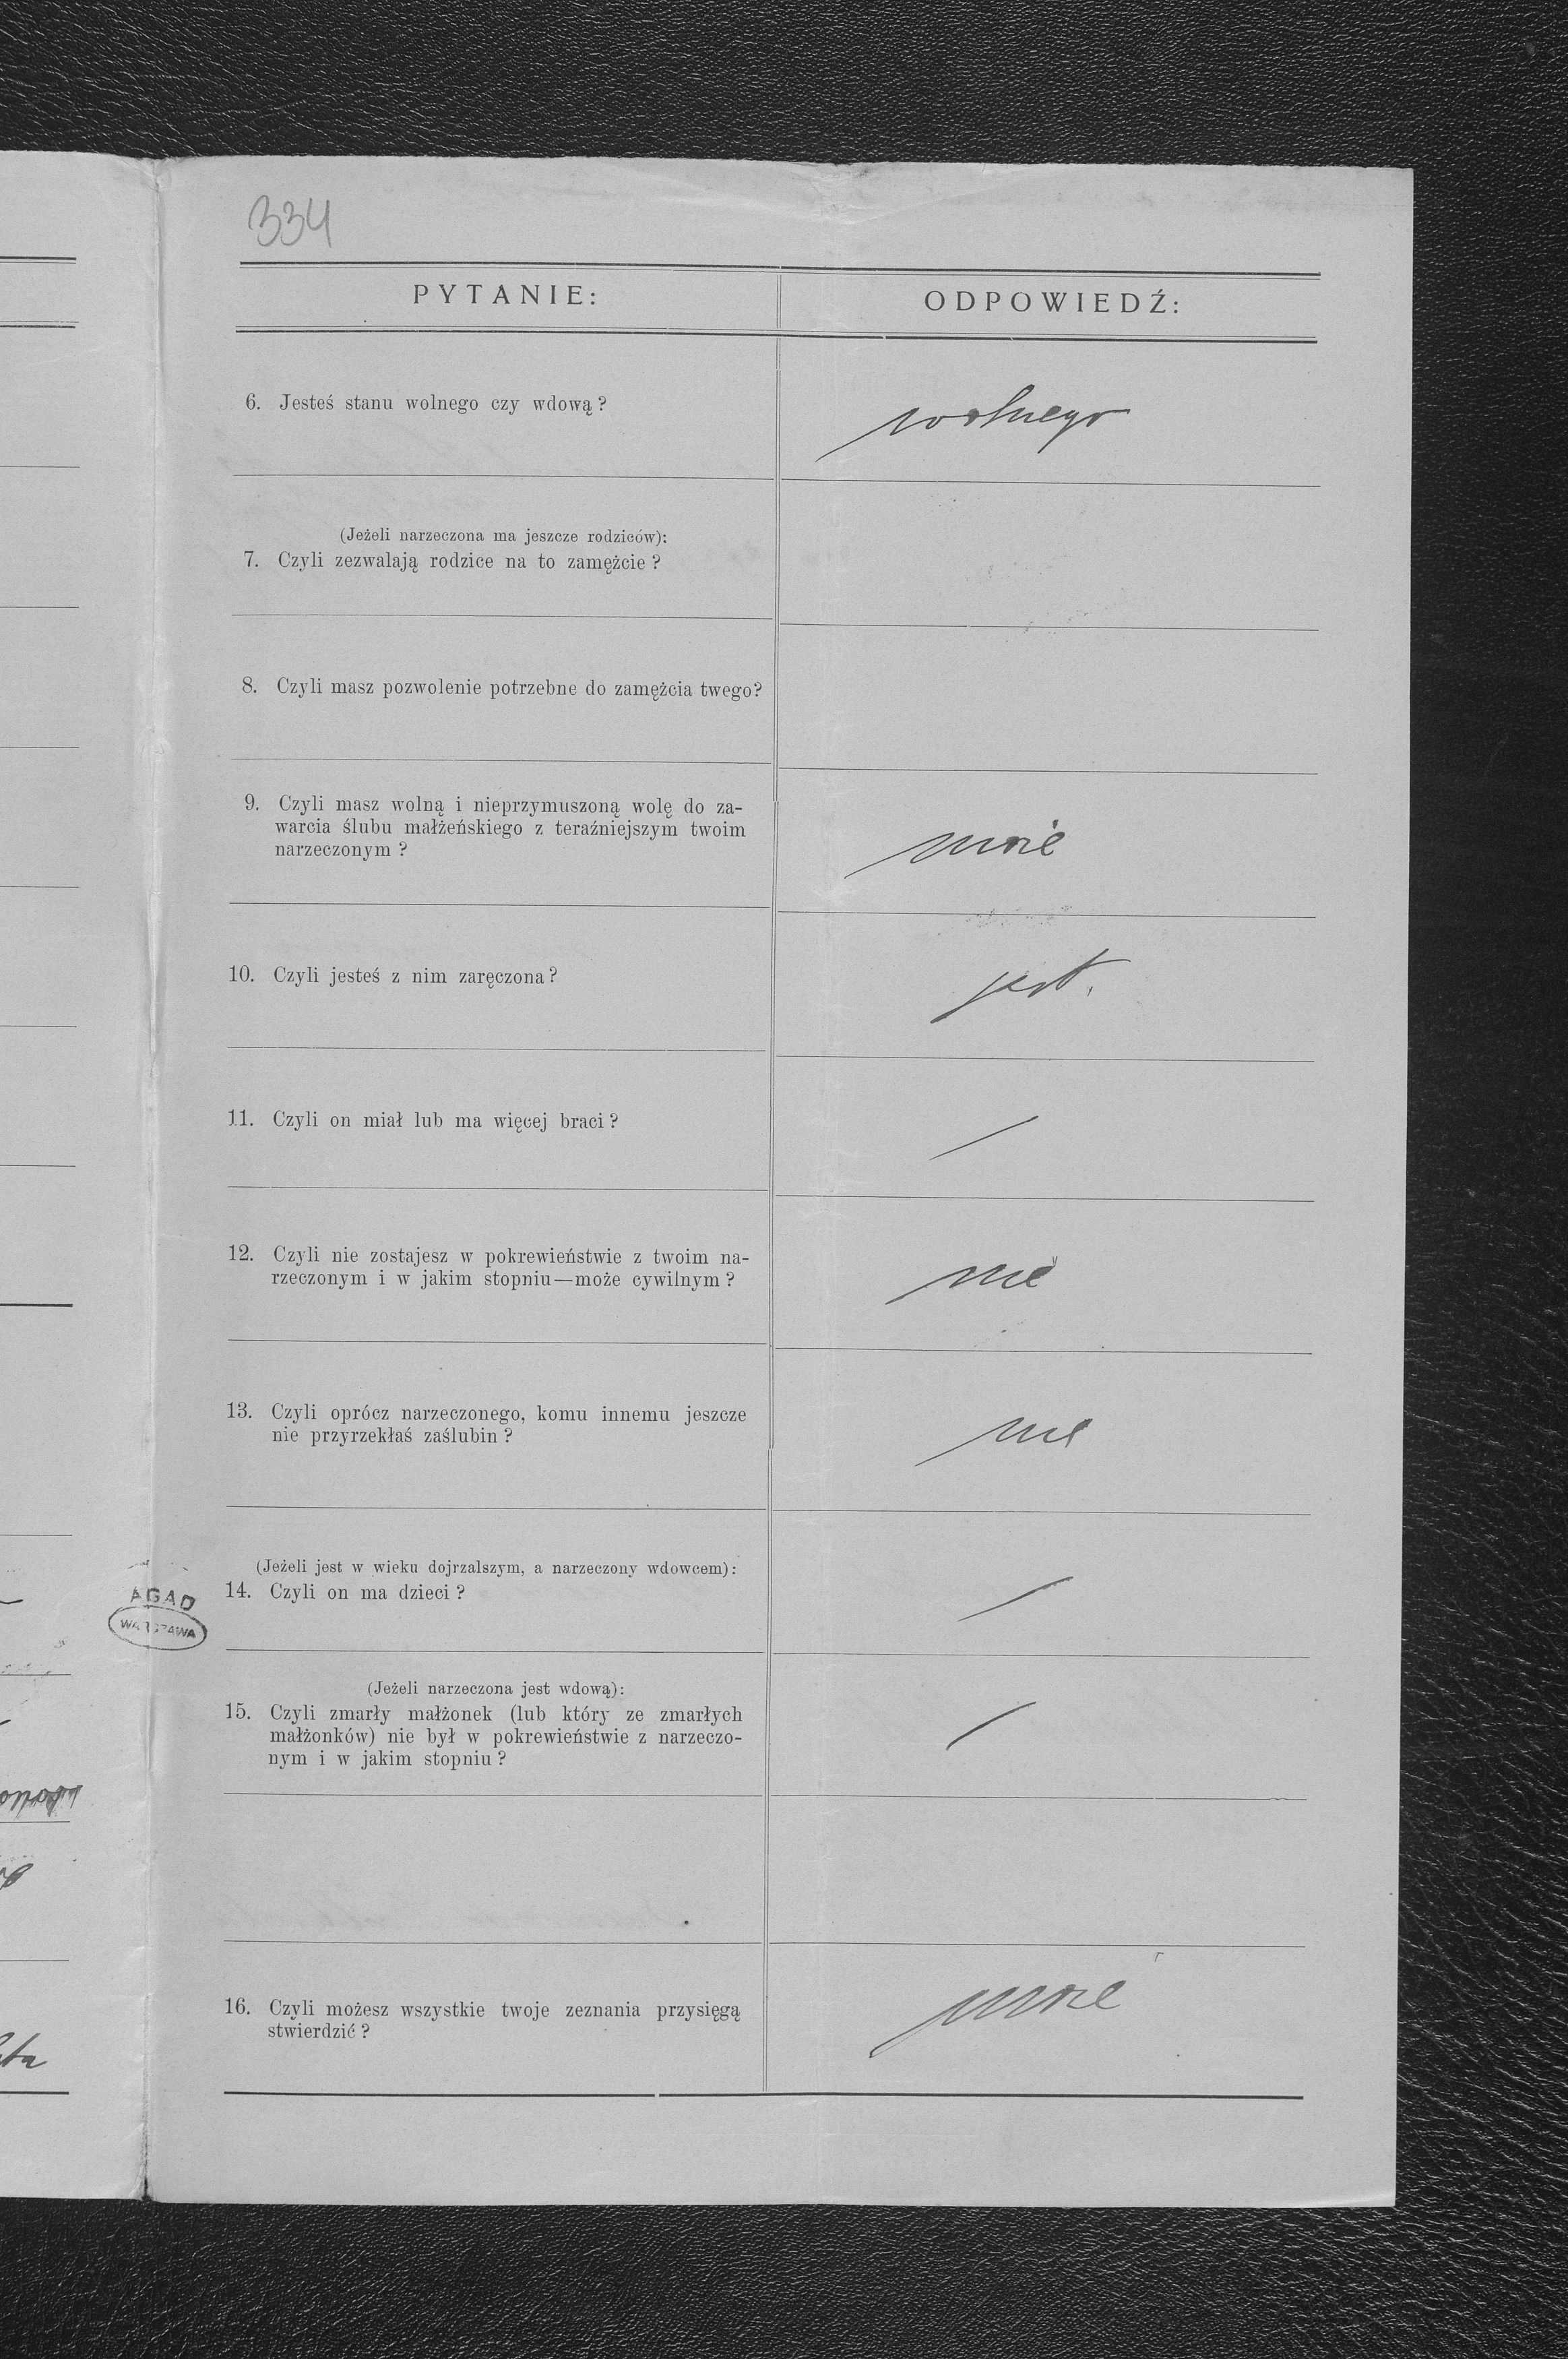 334
PYTANIE:
ODPOWIEDŹ:
6. Jesteś stanu wolnego czy wdową?
wolnego
(Jeżeli narzeczona ma jeszcze rodziców):
7. Czyli zezwalają rodzice na to zamężcie?
8. Czyli masz pozwolenie potrzebne do zamężcia twego?
9. Czyli masz wolną i nieprzymuszoną wolę do za-
warcia ślubu małżeńskiego z teraźniejszym twoim
narzeczonym?
10. Czyli jesteś z nim zaręczona?
jest.
11. Czyli on miał lub ma więcej braci?
12. Czyli nie zostajesz w pokrewieństwie z twoim na-
rzeczonym i w jakim stopniu—może cywilnym?
nie
13. Czyli oprócz narzeczonego, komu innemu jeszcze
nie przyrzekłaś zaślubin?
nie
(Jeżeli jest w wieku dojrzalszym, a narzeczony wdowcem):
14. Czyli on ma dzieci?
AGAD
WARSZAWA
(Jeżeli narzeczona jest wdową):
15. Czyli zmarły małżonek (lub który ze zmarłych
małżonków) nie był w pokrewieństwie z narzeczo-
nym i w jakim stopniu?
16. Czyli możesz wszystkie twoje zeznania przysięgą
stwierdzić?